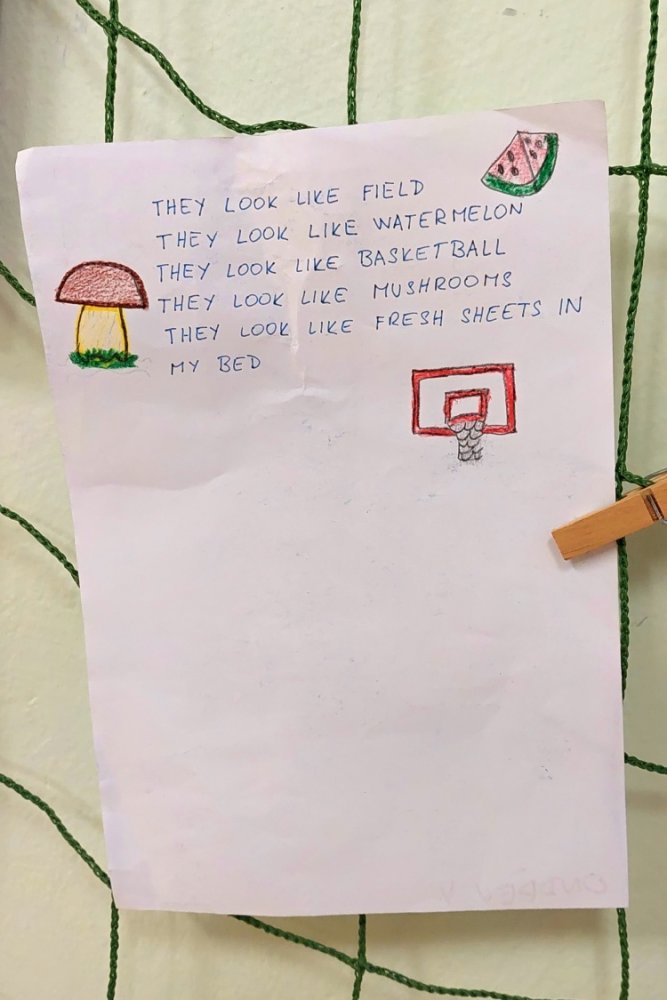 THEY LOOK LIKE FIELD
THEY LOOK LIKE WATERMELON
THEY LOOK LIKE BASKETBALL
THEY LOOK LIKE MUSHROOMS
THEY LOOK LIKE FRESH SHEETS IN
MY BED